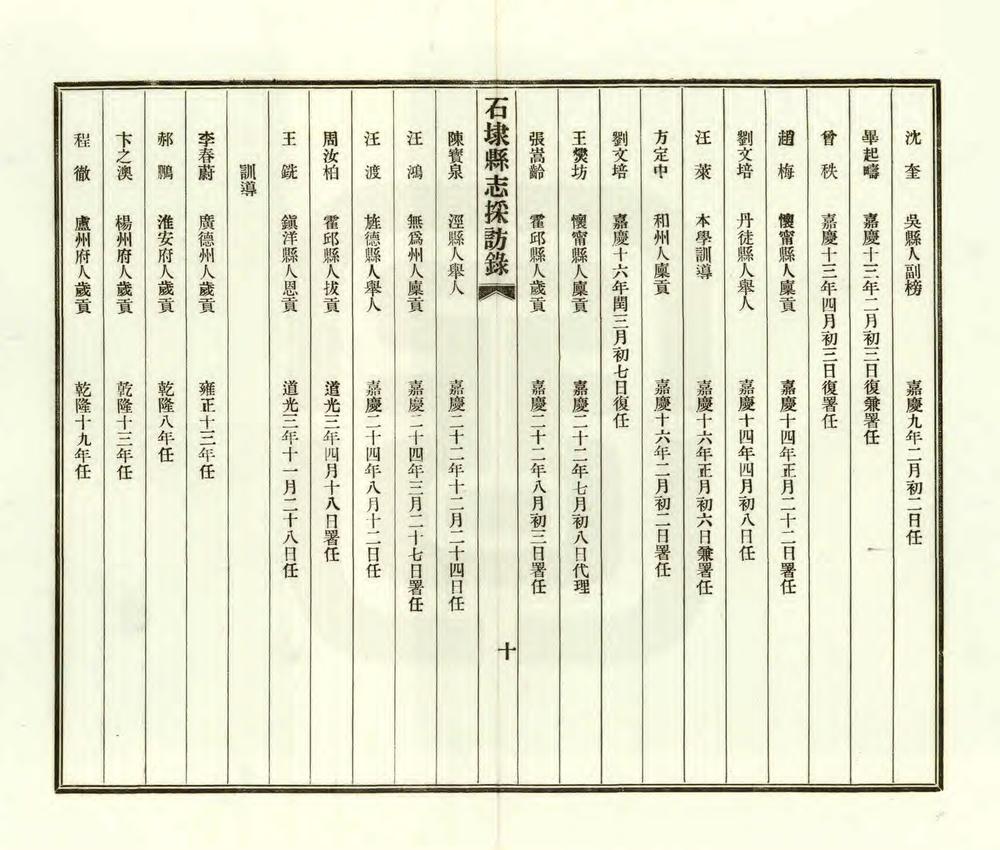 沈　奎　吳縣人副榜　嘉慶九年二月初二日任
畢起疇　嘉慶十三年二月初三日復兼署任
曾　秩　嘉慶十三年四月初三日復署任
趙　梅　懷甯縣人廩貢　嘉慶十四年正月二十二日署任
劉文培　丹徒縣人舉人　嘉慶十四年四月初八日任
汪　萊　本學訓導　嘉慶十六年正月初六日兼署任
方定中　和州人廩貢　嘉慶十六年二月初二日署任
劉文培　嘉慶十六年閏三月初七日復任
王爕坊　懷甯縣人廩貢　嘉慶二十二年七月初八日代理
張嵩齡　霍邱縣人歲貢　嘉慶二十二年八月初三日署任
石埭縣志採訪錄　十
陳寶泉　涇縣人舉人　嘉慶二十二年十二月二十四日任
汪　鴻　無爲州人廩貢　嘉慶二十四年三月二十七日署任
汪　渡　旌德縣人舉人　嘉慶二十四年八月十二日任
周汝柏　霍邱縣人拔貢　道光三年四月十八日署任
王　銑　鎭洋縣人恩貢　道光三年十一月二十八日任
訓導
李春蔚　廣德州人歲貢　雍正十三年任
郝　鵬　淮安府人歲貢　乾隆八年任
卞之澳　楊州府人歲貢　乾隆十三年任
程　徹　盧州府人歲貢　乾隆十九年任